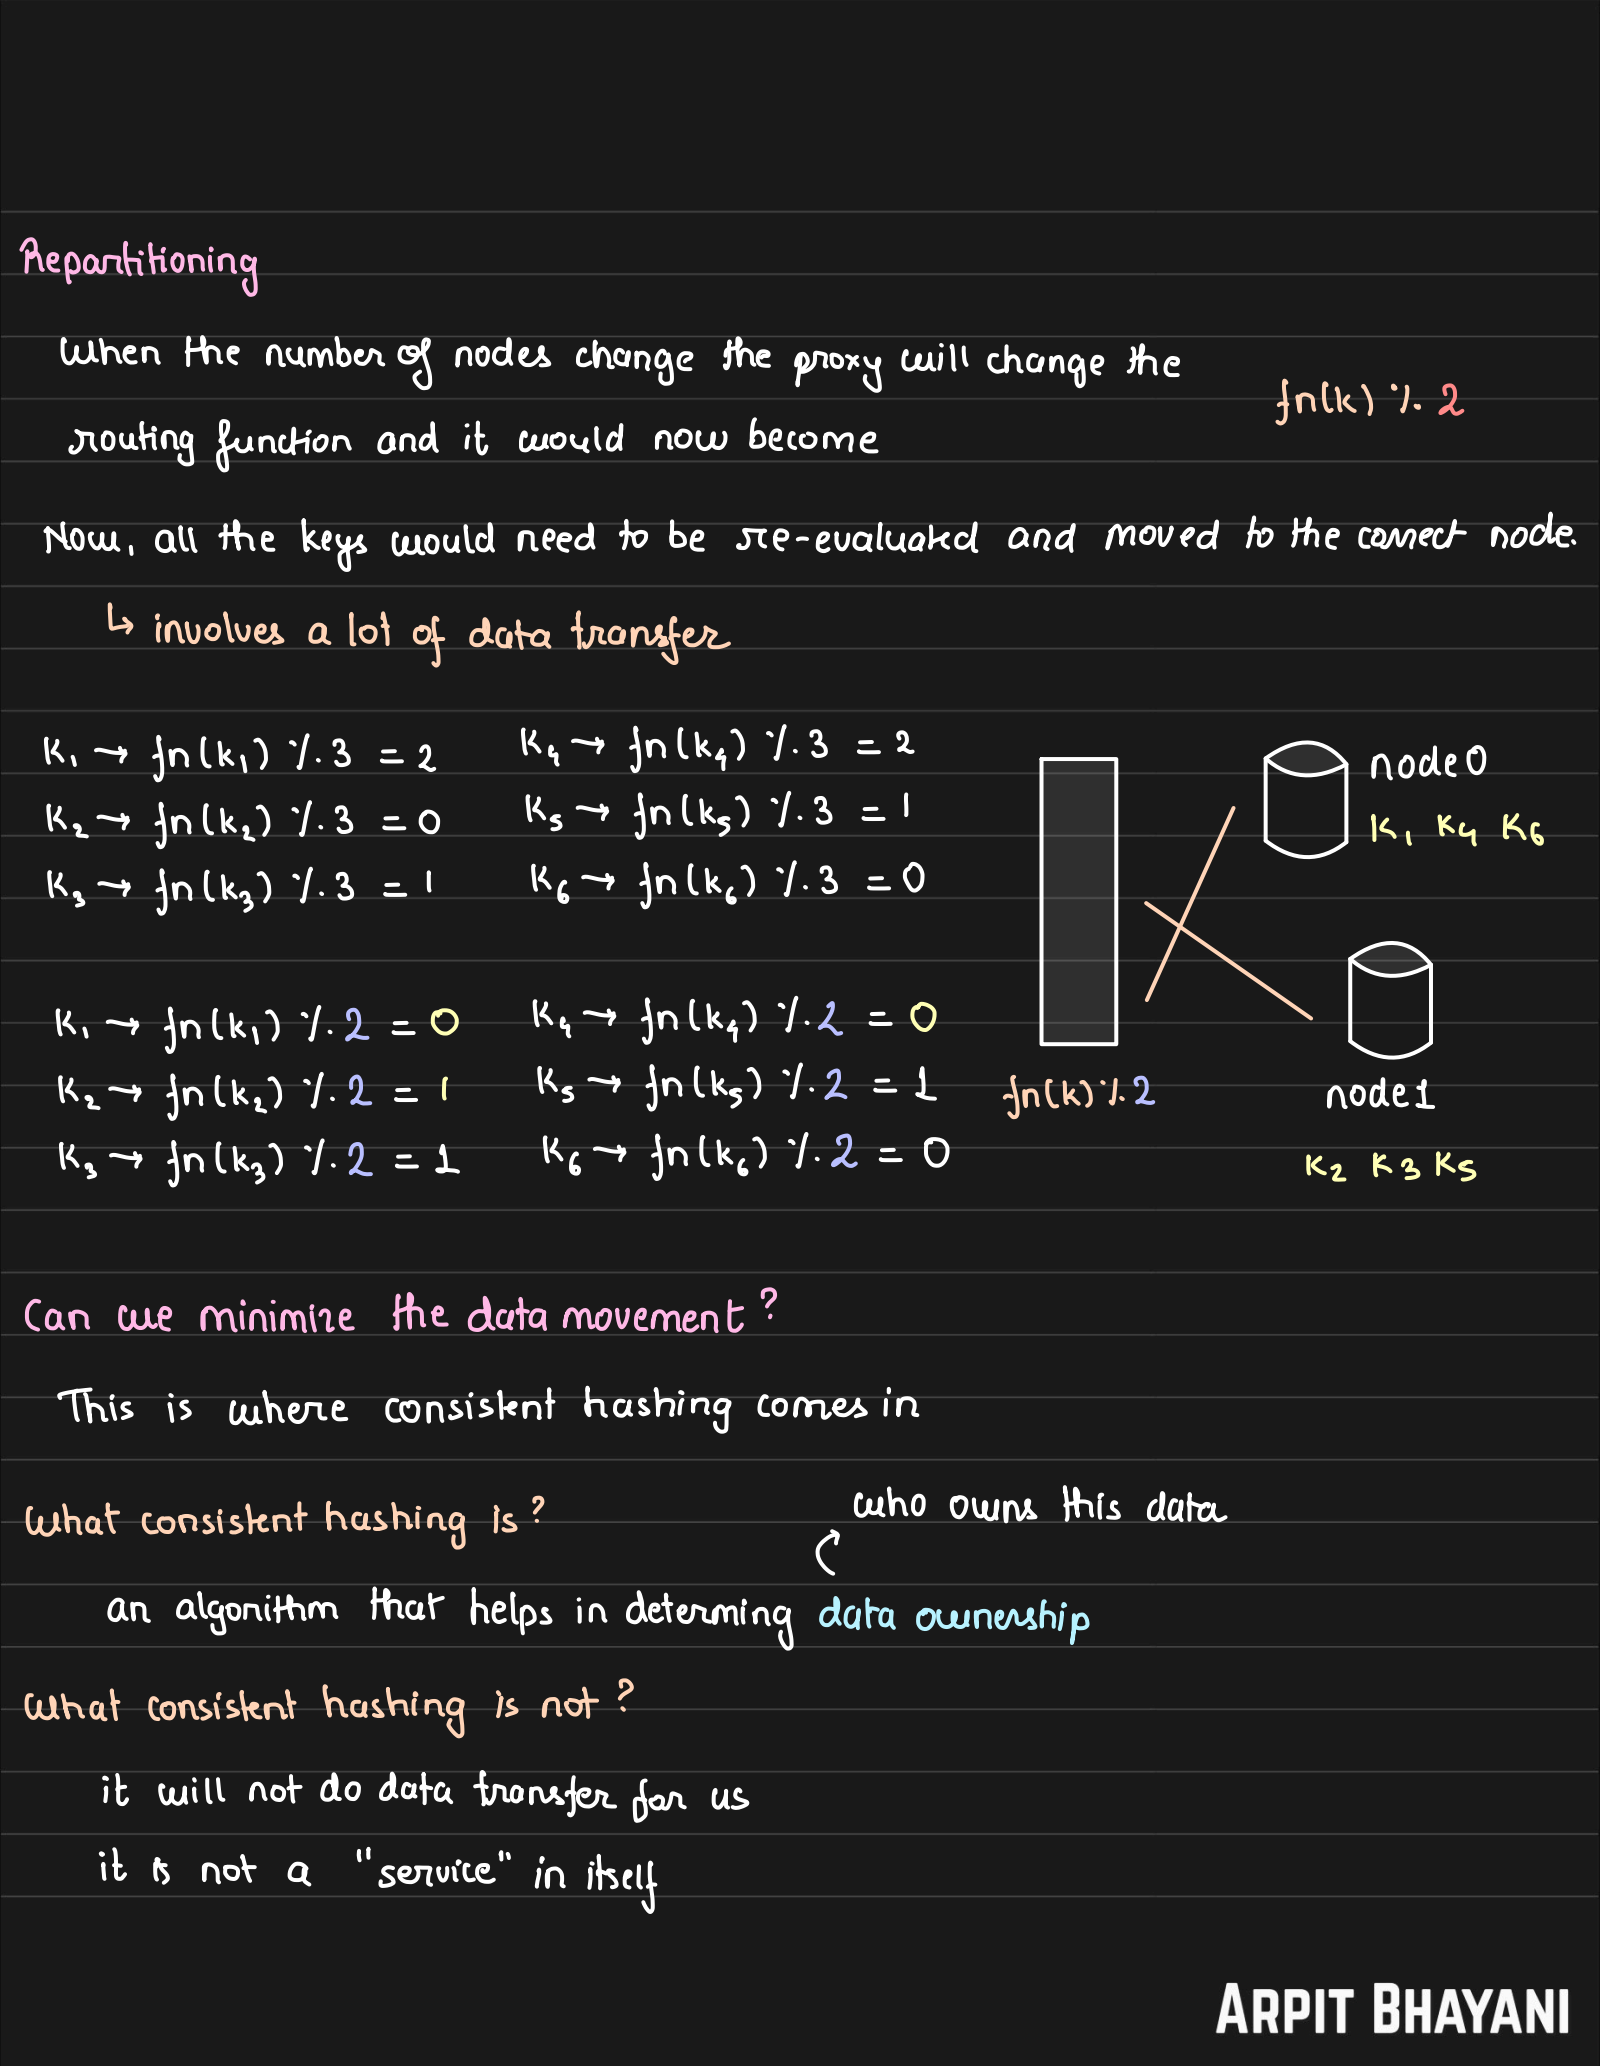 Repartitioning
When the number of nodes change the proxy will change the
routing function and it would now become
fn(k) % 2
Now, all the keys would need to be re-evaluated and moved to the correct node.
↳ involves a lot of data transfer
K₁ → fn(k₁) % 3 = 2
K₂ → fn(k₂) % 3 = 0
K₃ → fn(k₃) % 3 = 1
K₄ → fn(k₄) % 3 = 2
K₅ → fn(k₅) % 3 = 1
K₆ → fn(k₆) % 3 = 0
K₁ → fn(k₁) % 2 = 0
K₂ → fn(k₂) % 2 = 1
K₃ → fn(k₃) % 2 = 1
K₄ → fn(k₄) % 2 = 0
K₅ → fn(k₅) % 2 = 1
K₆ → fn(k₆) % 2 = 0
node 0
K₁ K₄ K₆
fn(k) % 2
node 1
K₂ K₃ K₅
Can we minimize the data movement?
This is where consistent hashing comes in
What consistent hashing is?
who owns this data
an algorithm that helps in determing data ownership
What consistent hashing is not?
it will not do data transfer for us
it is not a "service" in itself
ARPIT BHAYANI